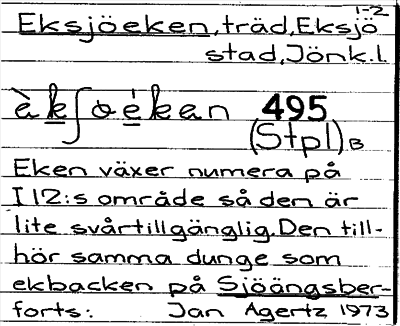 1-2
Eksjöeken, träd, Eksjö
stad, Jönk.l.
èkʃøékan 495
(Stpl) B
Eken växer numera på
I 12:s område så den är
lite svårtillgänglig. Den till-
hör samma dunge som
ekbacken på Sjöängsber-
forts: Jan Agertz 1973